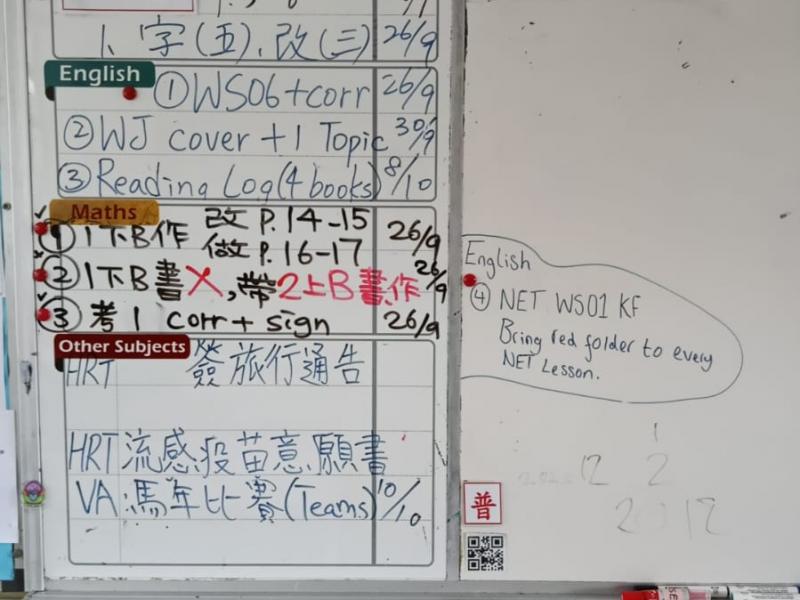 卜、字(五)、改(三) 26/9
English
①WS06+corr 26/9
②WJ cover +1 Topic 30/9
③Reading Log(4 books) 8/10
Maths
①1下B作 改 P.14-15
做 P.16-17 26/9
②1下B書X,帶2上B書,作 26/9
③考1 corr + sign 26/9
Other Subjects
HRT 簽旅行通告
HRT流感疫苗意願書
VA馬年比賽(Teams) 10/10
English
④ NET WS01 KF
Bring red folder to every
NET Lesson.
普